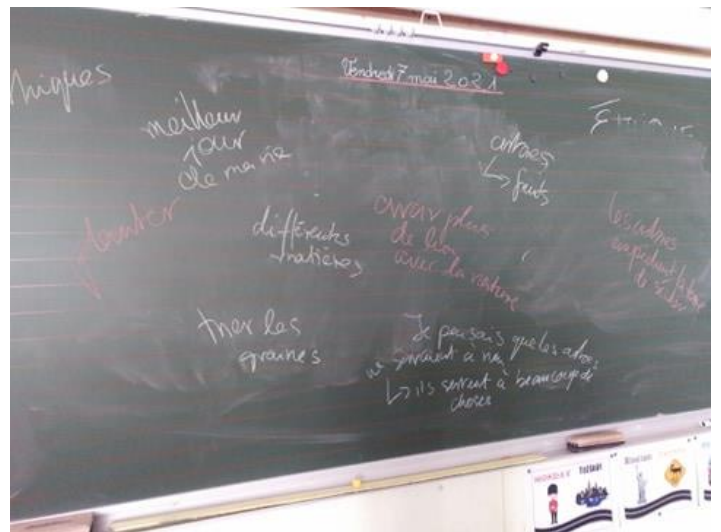 Vendredi 7 mai 2021
meilleur
jour
de ma vie
arbres
↳ fruits
planter
différentes
matières
avoir plus
de lien
avec la nature
les arbres
empêchent la
trier les
graines
Je pensais que les arbres
ne servaient à rien
↳ ils servent à beaucoup de
choses